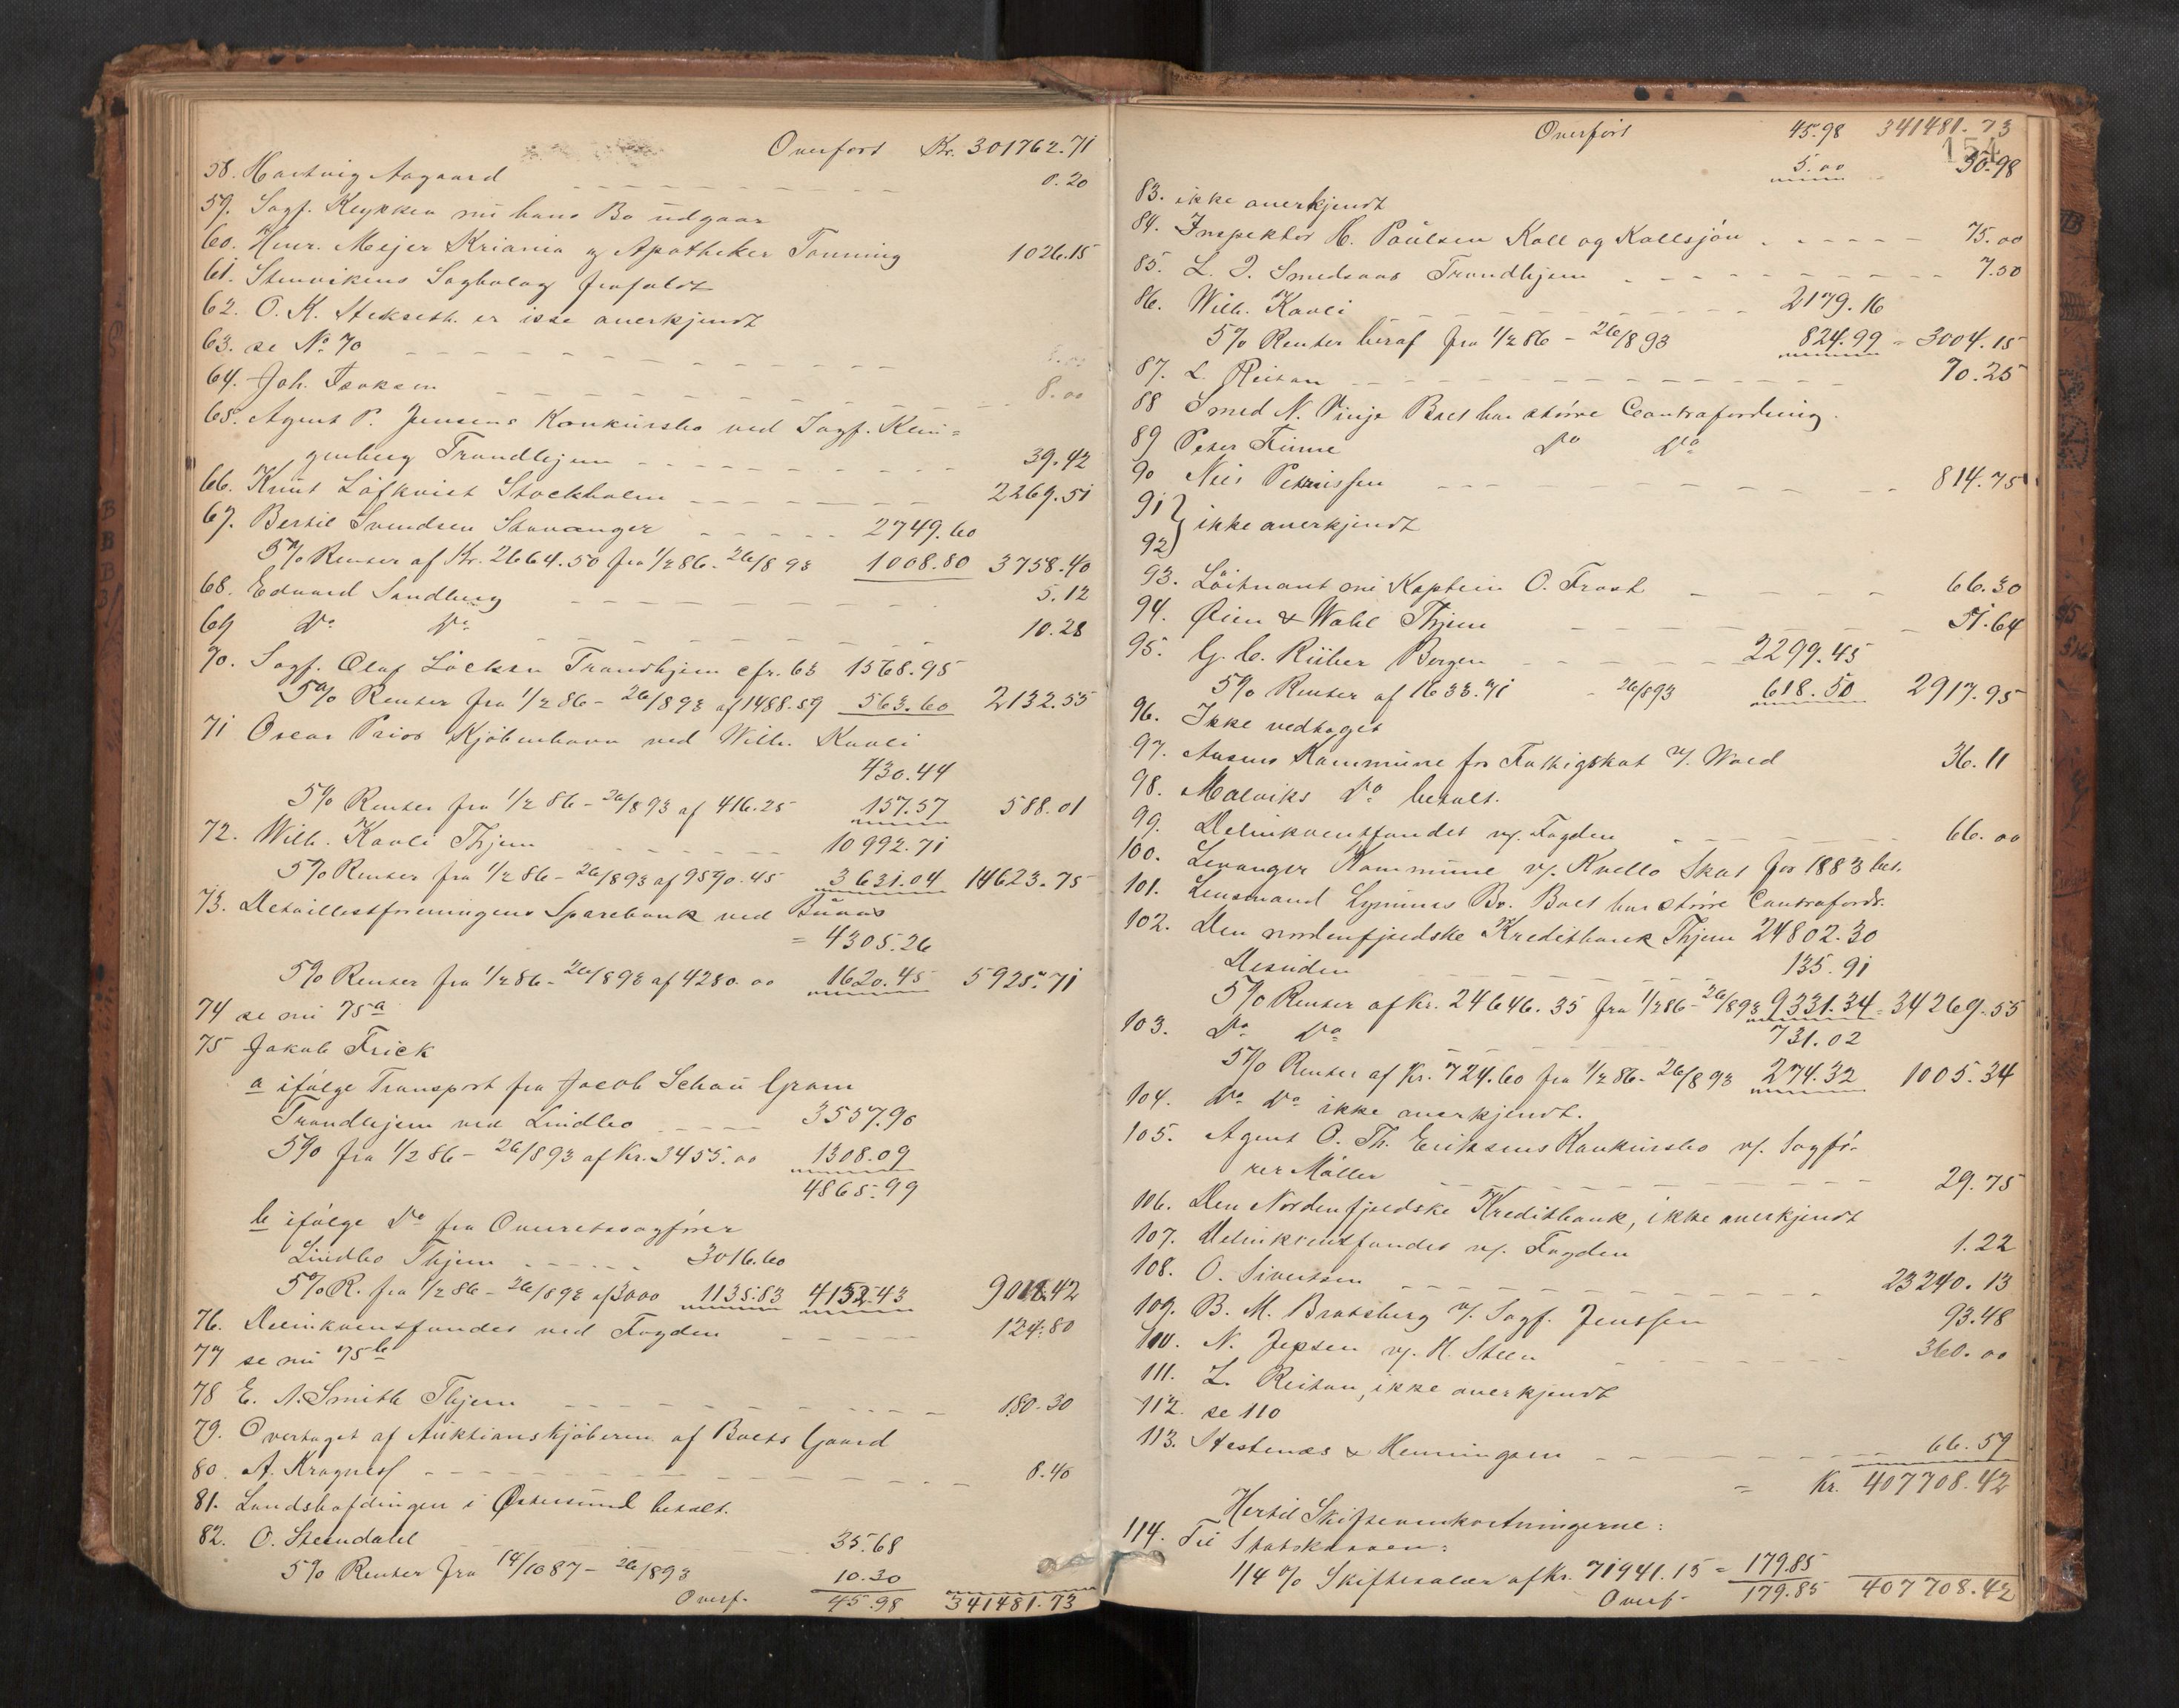 Overført Kr. 301762.71
58. Hartvig Aagaard 0.20
59. Sagf. Keykken nu hans Bo udgaar
60. Henr. Meijer Kriania og Apotheker Tonning 1026.15
61. Stenvikens Sagbolag frafaldt
62. O. K. Stekseth. er ikke anerkjendt
63. se No. 70
64. Joh. Isaksen 8.00
65. Agent P. Jensens Konkursbo ved Sagf. Klin=
genberg Trondhjem 39.42
66. Knut Löfkvist Stockholm 2269.51
67. Bertil Svendsen Stavanger 2749.60
5% Renter af Kr. 2664.50 fra 1/2 86 - 26/8 93 1008.80 3758.40
68. Edvard Sandberg 5.12
69 Do Do 10.28
70. Sagf. Olaf Löcken Trondhjem cfr. 63 1568.95
5% Renter fra 1/2 86 - 26/8 93 af 1488.89 563.60 2132.55
71 Oscar Prior Kjöbenhavn ved Wilh. Kavli
430.44
5% Renter fra 1/2 86 - 26/8 93 af 416.25 157.57 588.01
72. Wilh. Kavli Thjem 10992.71
5% Renter fra 1/2 86 - 26/8 93 af 9590.45 3631.04 14623.75
73. Detaillistforeningens Sparebank ved Buaas
= 4305.26
5% Renter fra 1/2 86 - 26/8 93 af 4280.00 1620.45 5925.71
74 se nu 75a
75 Jakob Frick
a ifølge Transport fra Jacob Schau Gram
Trondhjem ved Lindbo 3557.90
5% fra 1/2 86 - 26/8 93 af Kr. 3455.00 1308.09
4865.99
b ifølge Do fra Overretssagfører
Lindbo Thjem 3016.60
5% R. fra 1/2 86 - 26/8 93 af 3000 1135.83 4152.43 9018.42
76. Delinkventfondet ved Fogden 124.80
77 se nu 75b
78 E. A. Smith Thjem 180.30
79. Overtaget af Auktionskjøberen af Boets Gaard
80. A. Kragness 8.40
81. Landshøfdingen i Østersund betalt.
82. O. Steindahl 35.68
5% Renter fra 14/10 87 - 26/8 93 10.30
Overf. 45.98 341481.73
Overført 45.98 341481.73
154
5.00 50.98
83. ikke anerkjendt
84. Inspektør H. Paulsen Kall og Kallsjön 75.00
85. L. J. Smedsaas Trondhjem 7.50
86. Wilh. Kavli 2179.16
5% Renter heraf fra 1/2 86 - 26/8 93 824.99 = 3004.15
87. L. Reitan 70.25
88 Smed N. Vinje Boet har större Contrafordring.
89 Peter Finne Do Do
90 Nils Petrissen 814.75
91
92} ikke anerkjendt
93. Löitnant nu Kaptein O. Frost 66.30
94. Øien & Wahl Thjem 51.64
95. G. C. Rieber Bergen 2299.45
5% Renter af 1633.71 - 26/8 93 618.50 2917.95
96. Ikke vedtaget
97. Aasens Kommune for Fattigskat v/. Woed 36.11
98. Malviks Do betalt.
99. Delinkventfondet v/. Fogden 66.00
100. Levanger Kommune v/. Kvello Skat for 1883 bet.
101. Lensmand Lynums Bo. Boet har större Contrafordr.
102. Den nordenfjeldske Kreditbank Thjem 24802.30
Desuden 135.91
5% Renter af Kr. 24646.35 fra 1/2 86 - 26/8 93 9331.34 = 34269.55
103. Do Do 731.02
5% Renter af Kr. 724.60 fra 1/2 86 - 26/8 93 274.32 1005.34
104. Do Do ikke anerkjendt.
105. Agent O. Th. Eriksens Konkursbo v/. Sagfö-
rer Möller 29.75
106. Den Nordenfjeldske Kreditbank, ikke anerkjendt
107. Delinkventfondet v/. Fogden 1.22
108. O. Sivertsen 23240.13
109. B. M. Bratsberg v/. Sagf. Jenssen 93.48
110. N. Jepsen v/. H. Steen 360.00
111. L. Reitan, ikke anerkjendt
112. se 110
113. Hestenæs & Henningsen 66.59
= Kr. 407708.42
Hertil Skifteomkostningerne:
114. Til Statskassen:
1/4 % Skiftesalær af Kr. 71941.15 = 179.85
Overf. 179.85 407708.42